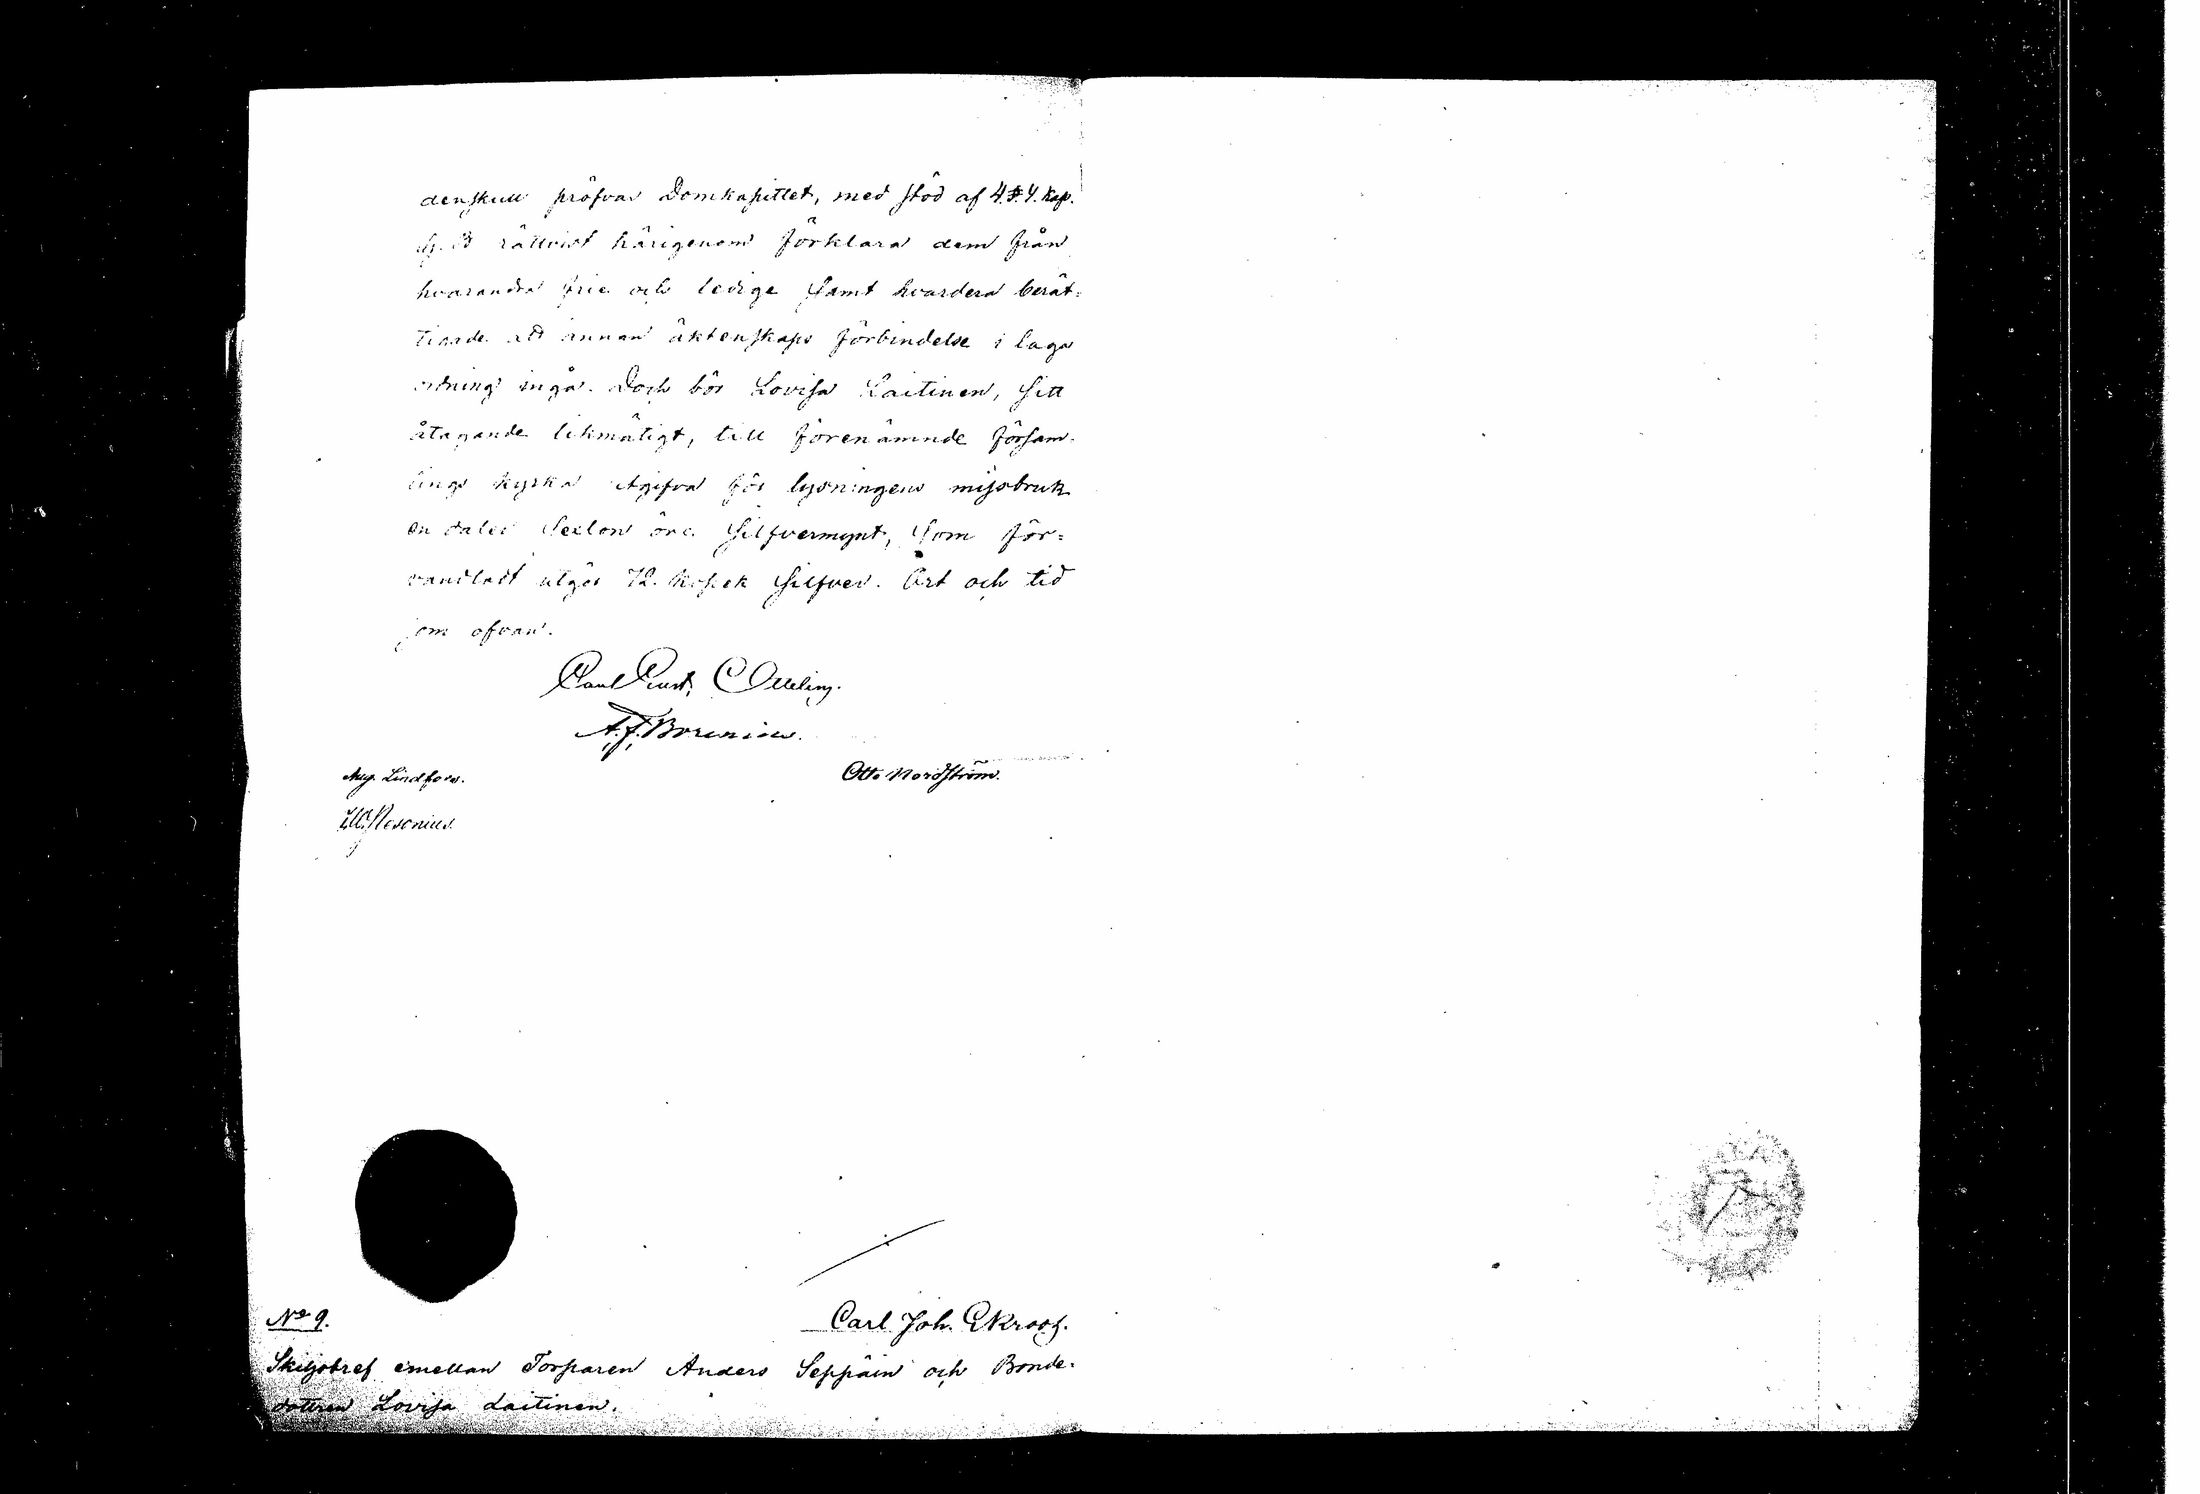 denskull pröfvar Domkapitlet, med stöd af 4.§.4.Kap.
G.B rättvist härigenom förklara dem från
hvarandra frie och ledige samt hvardera berät-
tigade att annan äktenskaps förbindelse i laga
ordning ingå. Doch bör Lovisa Laitinen, sitt
åtagande likmätigt, till förenämnde försam-
lings kyrka utgifva för lysningens missbruk
en daler Sexton öre Silfvermynt, som för-
vandladt utgör 72. kopek Silfver. Ort och tid
som ofvan.
Carl Gust. Ottelin.
A.F. Borenius.
Aug. Lindfors.
Otto Nordström.
Nesonius.
No 9.
Carl Joh. Ekroos.
Skiljobref emellan Torparen Anders Seppäin och Bonde-
dottren Lovisa Laitinen.